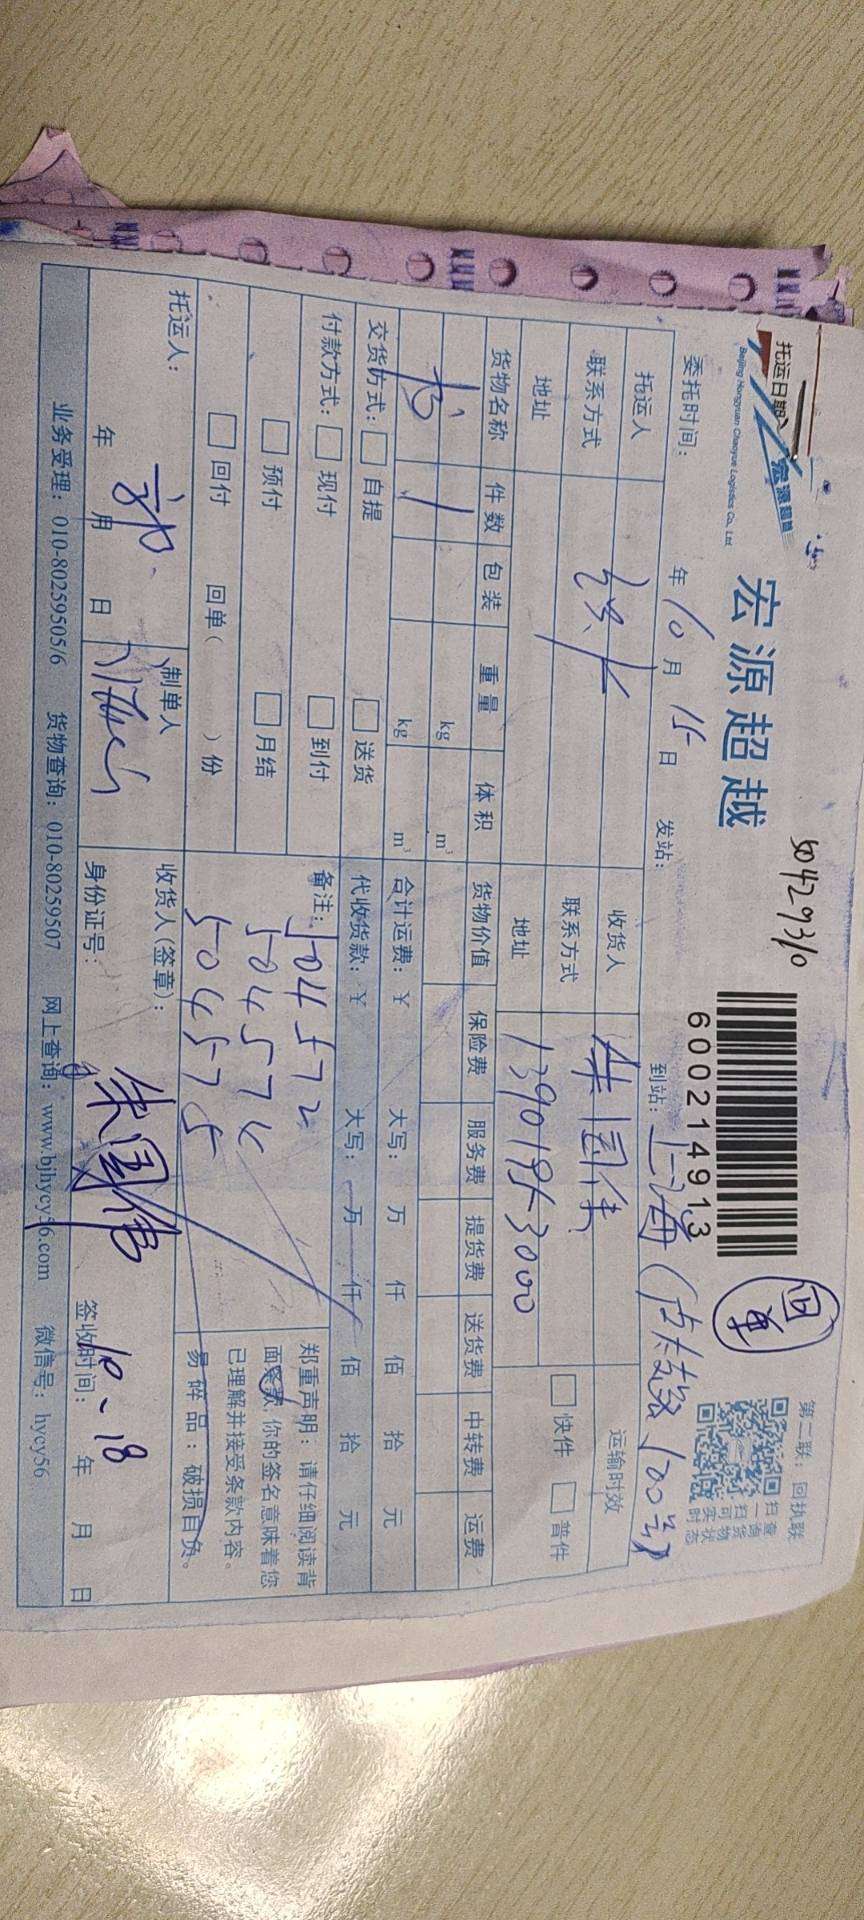 托运日期
宏源超越
Beijing Hongyuan Chaoyue Logistics Co., Ltd
宏源超越
50429310
600214913
回单
第二联：回执联
扫一扫可实时
查询货物状态
委托时间： 年 10 月 15 日 发站： 到站：上海
托运人 收货人 朱国伟 运输时效
联系方式 联系方式 13901953000 快件 普件
地址 地址
货物名称 件数 包装 重量 体积 货物价值 保险费 服务费 提货费 送货费 中转费 运费
kg m³
1 kg m³
合计运费：￥ 大写： 万 仟 佰 拾 元
交货方式： 自提 送货
代收货款：￥ 大写： 万 仟 佰 拾 元
付款方式： 现付 到付
预付 月结
回付 回单（ ）份
备注：504572
504574
504575
郑重声明：请仔细阅读背
面条款，你的签名意味着您
已理解并接受条款内容。
易碎品：破损自负。
托运人：
年 月 日
制单人
收货人（签章）： 朱国伟
身份证号：
签收时间： 10、18 年 月 日
业务受理：010-80259505/6 货物查询：010-80259507 网上查询：www.bjhycy56.com 微信号：hycy56